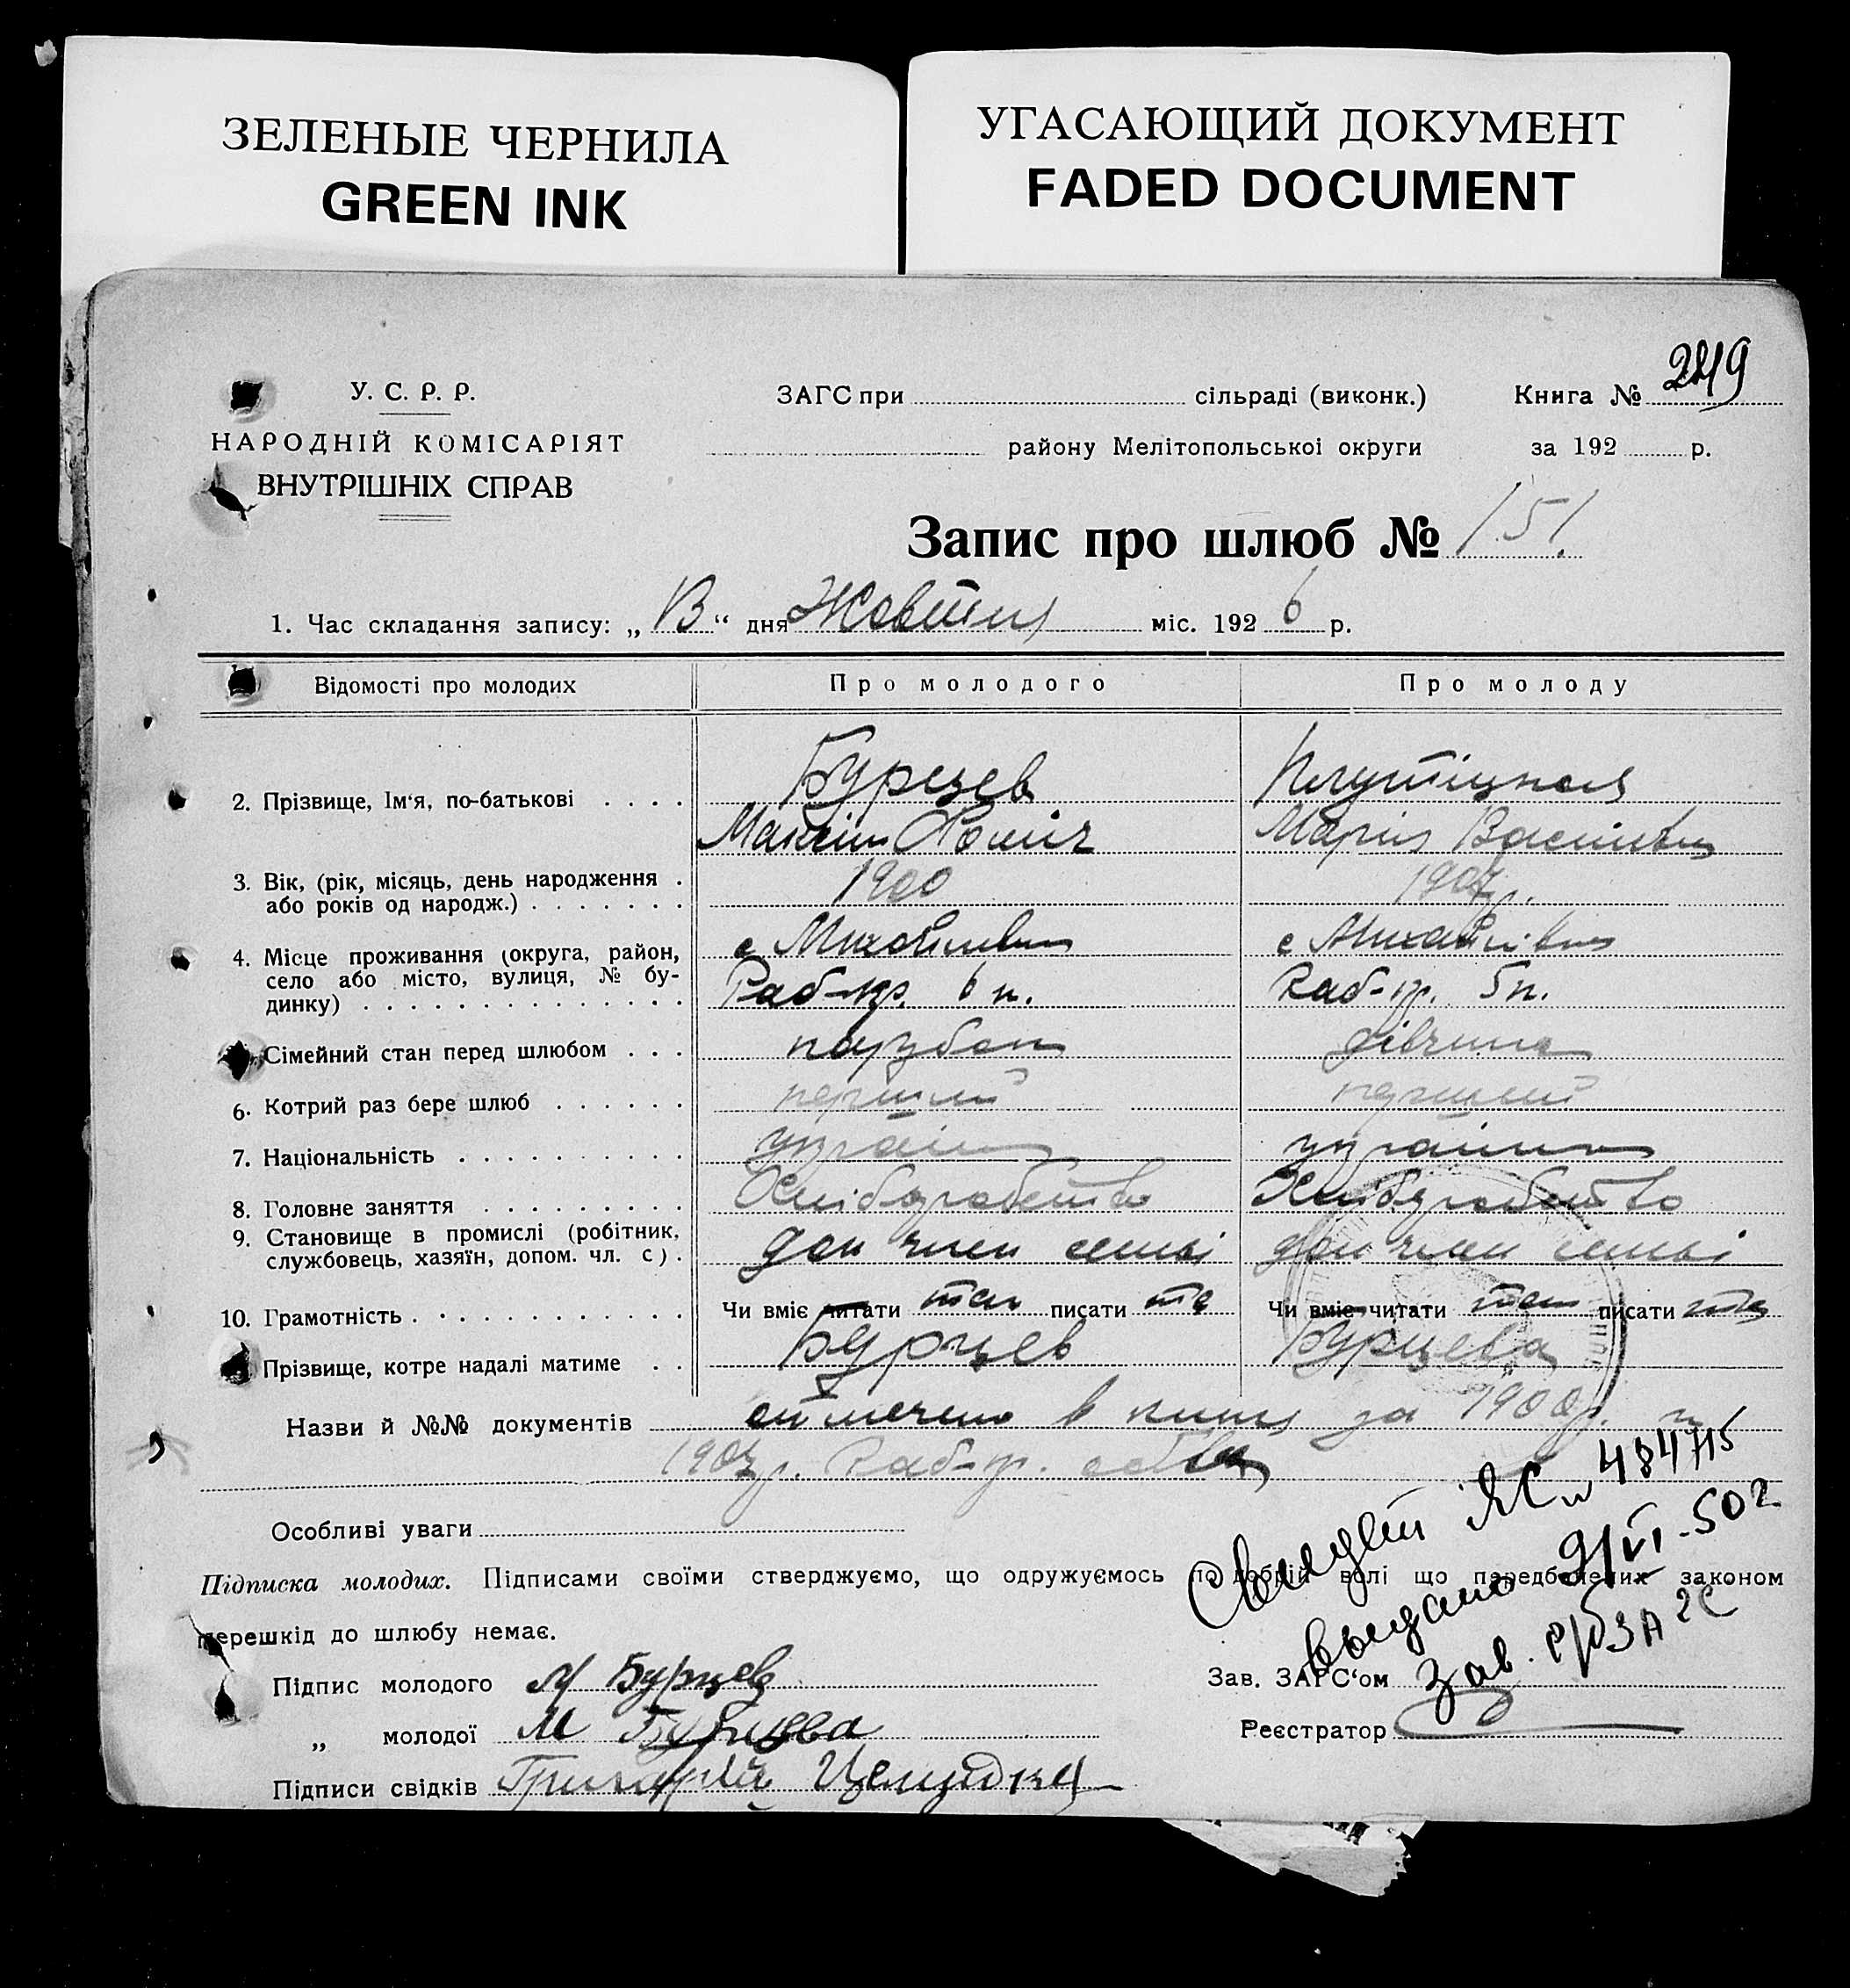 ЗЕЛЕНЫЕ ЧЕРНИЛА
GREEN INK
УГАСАЮЩИЙ ДОКУМЕНТ
FADED DOCUMENT
У. С. Р. Р.
НАРОДНІЙ КОМІСАРІЯТ
ВНУТРІШНІХ СПРАВ
ЗАГС при сільраді (виконк.)
району Мелітопольської округи
Книга № 249
за 192 р.
Запис про шлюб № 151.
1. Час складання запису: „ 13 “ дня Жовтня міс. 192 6 р.
Відомості про молодих Про молодого Про молоду
2. Прізвище, Ім‘я, по-батькові . . . . Бурцев
Максім Хоміч Марія Васильвна
3. Вік, (рік, місяць, день народження . 1900 1907 р.
або років од народж.) . . . . . . .
4. Місце проживання (округа, район, с Михайлівка с Михайлівка
село або місто, вулиця, № бу- Раб-кр. 6 п. Раб-кр. 5 п.
динку) . . . . . . . . . . . . . .
Сімейний стан перед шлюбом . . . парубок дівчина
6. Котрий раз бере шлюб . . . . . . перший перший
7. Національність . . . . . . . . . . україн українка
8. Головне заняття . . . . . . . . . Хліборобство Хліборобство
9. Становище в промислі (робітник, доп член семьі доп член семьі
службовець, хазяїн, допом. чл. с) .
10. Грамотність . . . . . . . . . . . . Чи вміє читати так писати та Чи вміє читати так писати так
Прізвище, котре надалі матиме . . Бурцев Бурцева
Назви й №№ документів отмечено в книз за 1900 р. и
1907 р. Раб-кр.
Особливі уваги
Свидет ЯС № 484715
выдано 9/VI-50 г
Зав. р/б ЗАГС
Підписка молодих. Підписами своїми стверджуємо, що одружуємось по добрій волі що передбачених законом
перешкід до шлюбу немає.
Підпис молодого М Бурцев
„ молодої М Бурцева
Підписи свідків Григорій
Зав. ЗАГС‘ом
Реєстратор